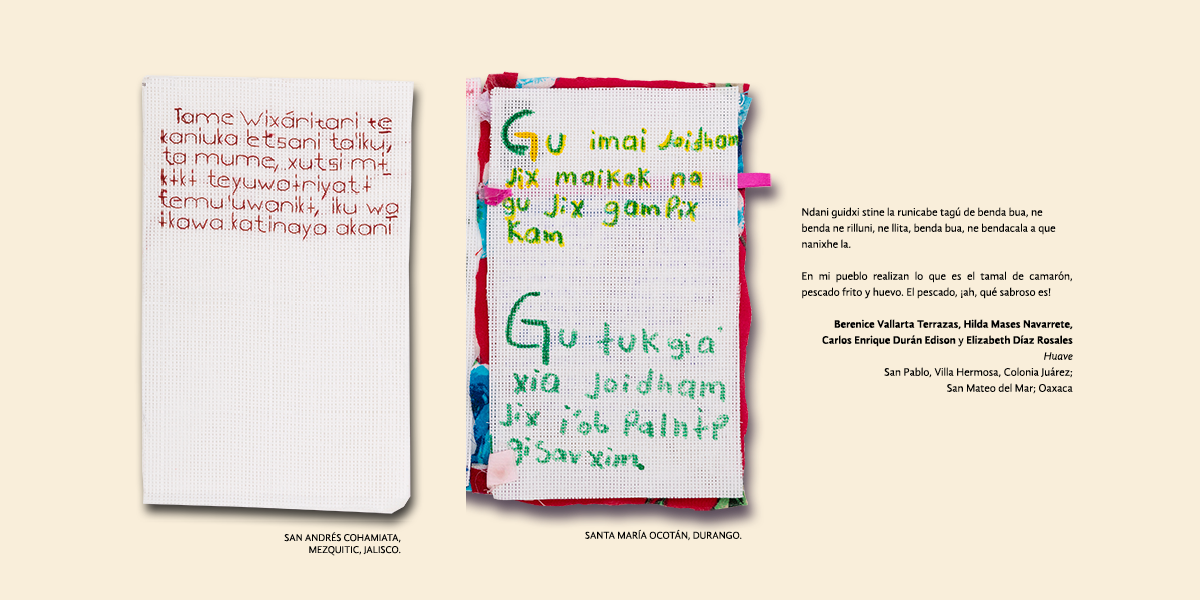 Tame Wixáritari te̲
kaniuka etsani ta'iku,
ta mume, xutsi mɨ
kɨkɨ teyuwatɨriyatɨ
temu'uwanikɨ, iku wa
ɨkawa katinaya akani
SAN ANDRÉS COHAMIATA,
MEZQUITIC, JALISCO.
Gu imai Joidham
Jix maikak na
gu Jix gampix
kam
Gu tukgia'
xia Joidham
Jix i'ob Palhɨp
gisarxim
SANTA MARÍA OCOTÁN, DURANGO.
Ndani guidxi stine la runicabe tagú de benda bua, ne
benda ne rilluni, ne llita, benda bua, ne bendacala a que
nanixhe la.
En mi pueblo realizan lo que es el tamal de camarón,
pescado frito y huevo. El pescado, ¡ah, qué sabroso es!
Berenice Vallarta Terrazas, Hilda Mases Navarrete,
Carlos Enrique Durán Edison y Elizabeth Díaz Rosales
Huave
San Pablo, Villa Hermosa, Colonia Juárez;
San Mateo del Mar; Oaxaca